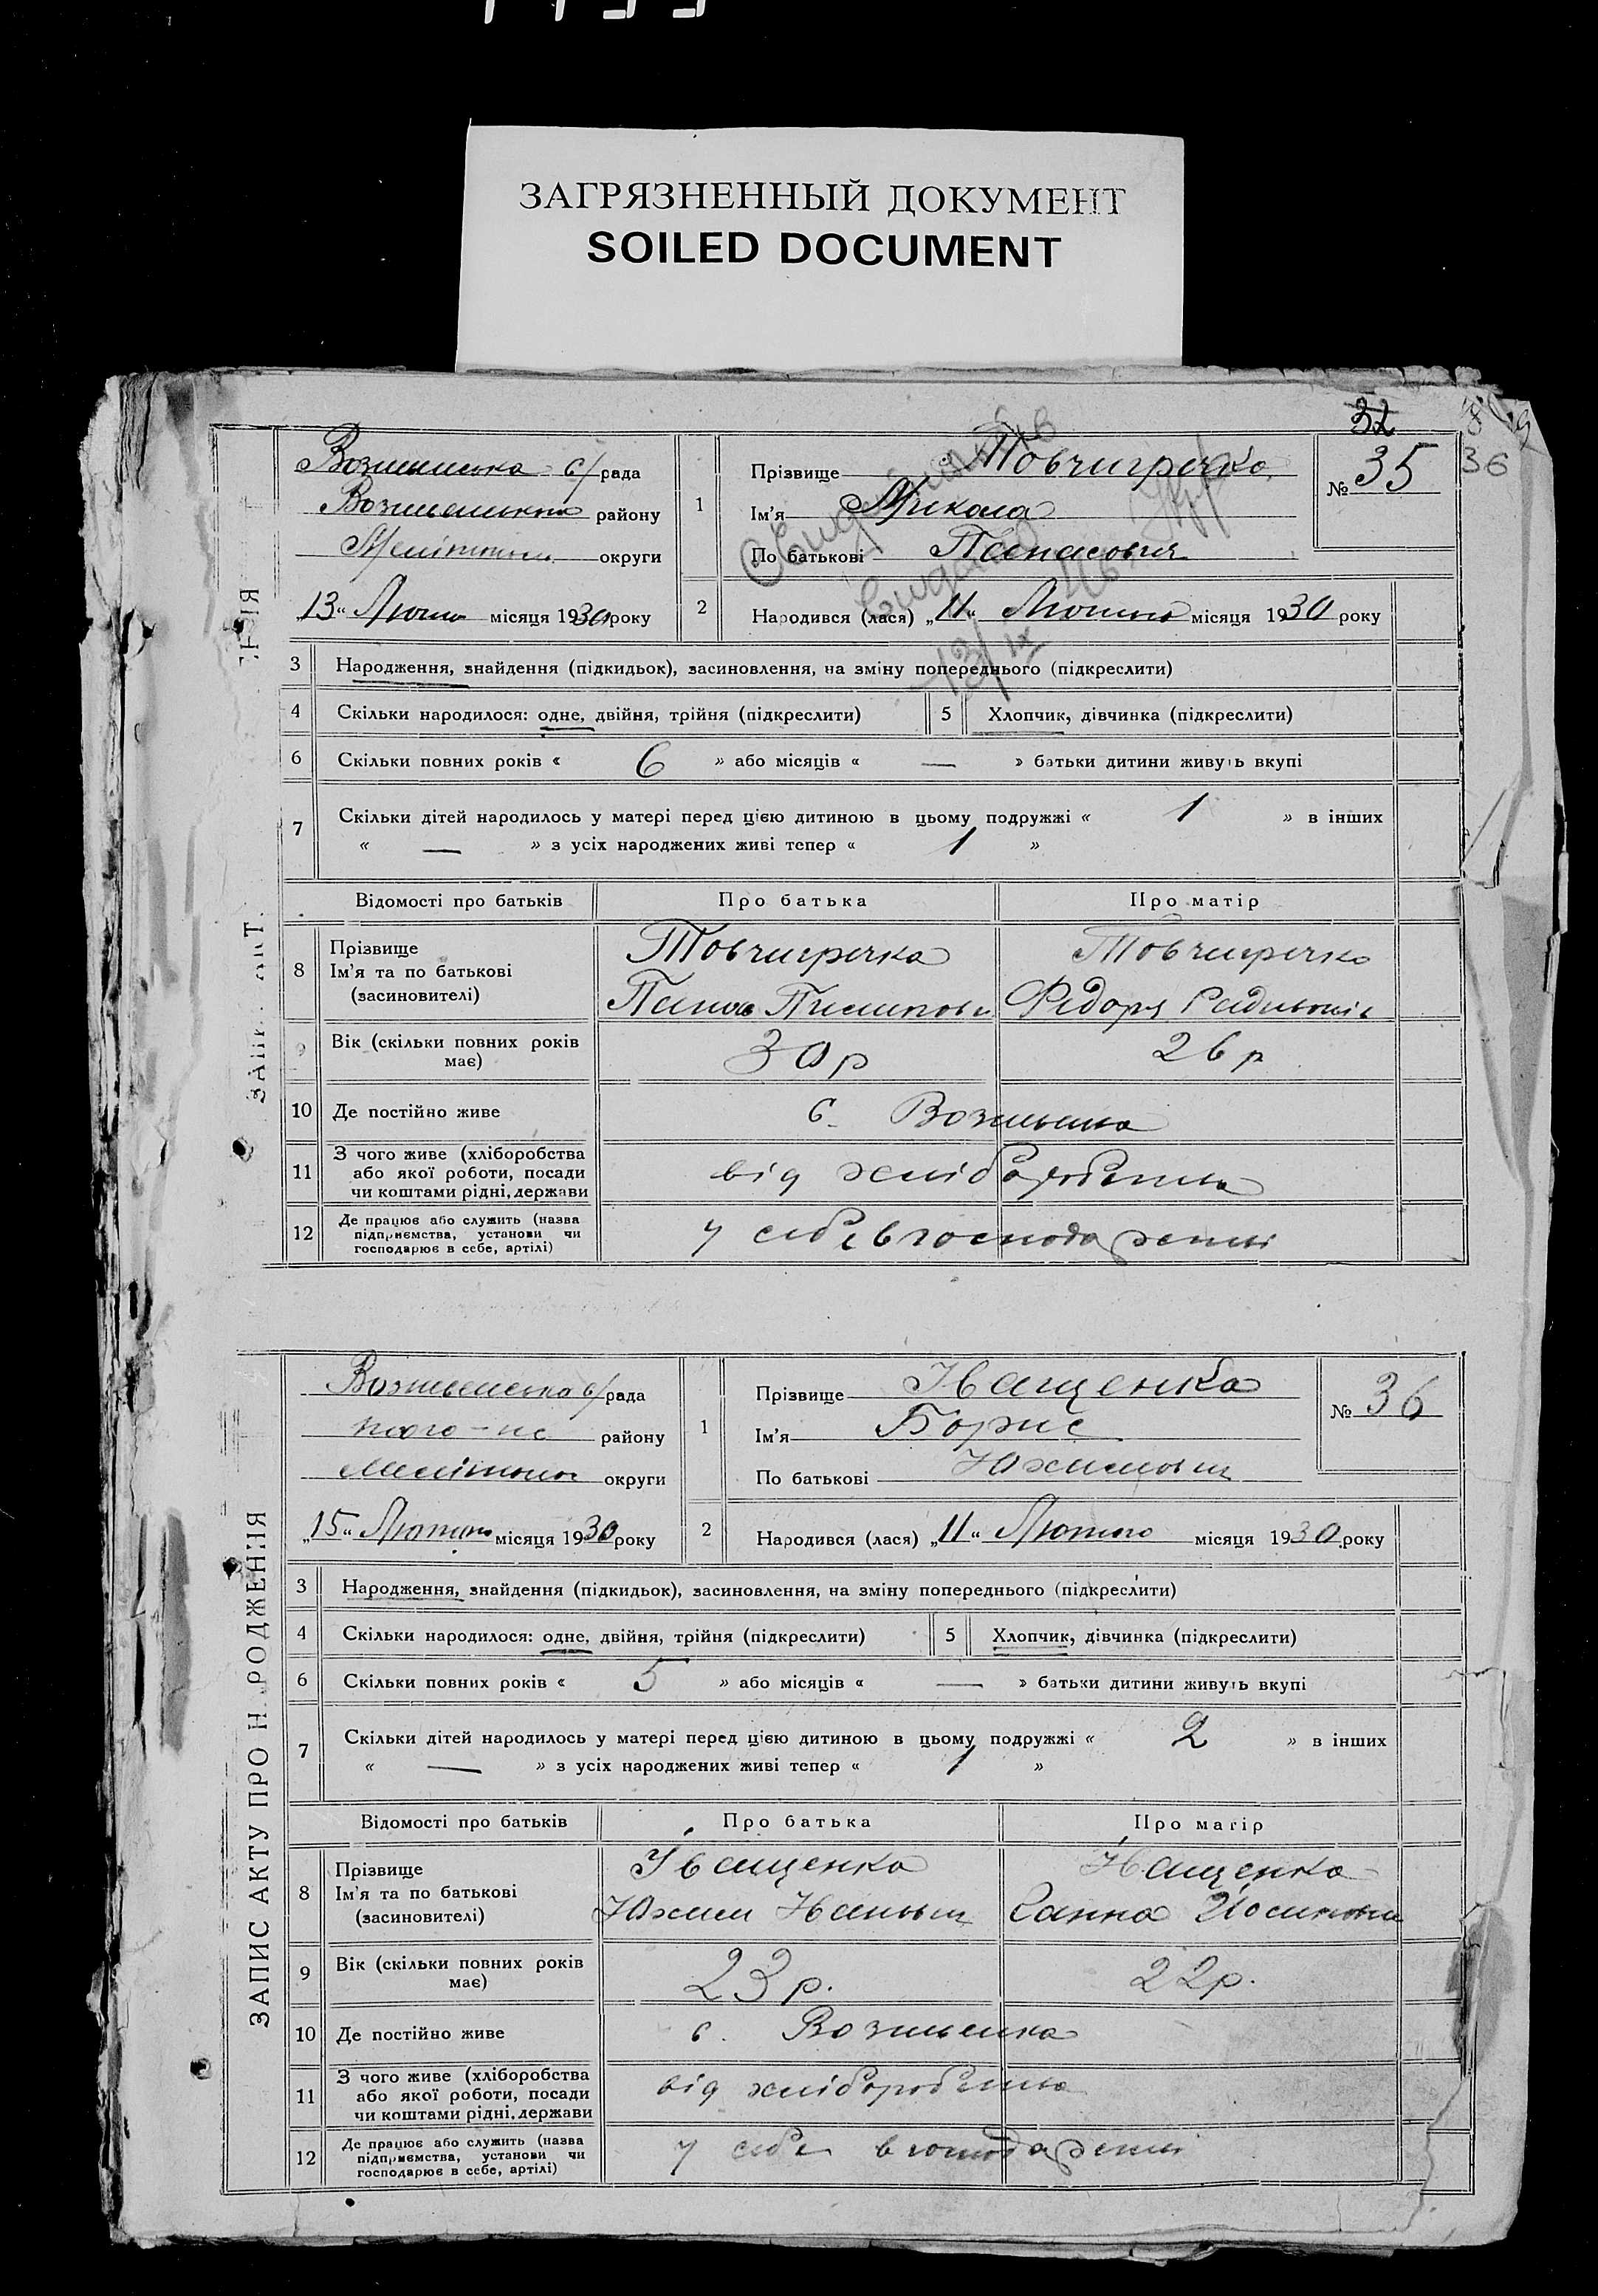 ЗАГРЯЗНЕННЫЙ ДОКУМЕНТ
SOILED DOCUMENT
32
36
с/рада
району
округи
„13“ місяця 1930 року
1 Прізвище Товчигречко
Ім'я Микола
По батькові Панасович
№ 35
2 Народився (лася) „11“ Лютого місяця 1930 року
13/IX
3 Народження, знайдення (підкидьок), засиновлення, на зміну попереднього (підкреслити)
4 Скільки народилося: одне, двійня, трійня (підкреслити) 5 Хлопчик, дівчинка (підкреслити)
6 Скільки повних років « 6 » або місяців « — » батьки дитини живуть вкупі
7 Скільки дітей народилось у матері перед цією дитиною в цьому подружжі « 1 » в інших
« — » з усіх народжених живі тепер « 1 »
Відомості про батьків Про батька Про матір
8 Прізвище Товчигречка Товчигречко
Ім'я та по батькові
(засновителі) Панас Федора
9 Вік (скільки повних років
має) 30 р 26 р
10 Де постійно живе с. Вознесенка
11 З чого живе (хліборобства
або якої роботи, посади
чи коштами рідні, держави від хліборобства
12 Де працює або служить (назва
підприємства, установи чи
господарює в себе, артілі) у себе в господарстві
ЗАПИС АКТУ ПРО НАРОДЖЕННЯ
с/рада
району
округи
„15“ Лютого місяця 1930 року
1 Прізвище Іващенко
Ім'я Борис
По батькові Юхимович
№ 36
2 Народився (лася) „11“ Лютого місяця 1930 року
3 Народження, знайдення (підкидьок), засиновлення, на зміну попереднього (підкреслити)
4 Скільки народилося: одне, двійня, трійня (підкреслити) 5 Хлопчик, дівчинка (підкреслити)
6 Скільки повних років « 5 » або місяців « — » батьки дитини живуть вкупі
7 Скільки дітей народилось у матері перед цією дитиною в цьому подружжі « 2 » в інших
« — » з усіх народжених живі тепер « 1 »
Відомості про батьків Про батька Про матір
8 Прізвище Іващенко Іващенко
Ім'я та по батькові
(засиновителі) Юхим Іванович Ганна
9 Вік (скільки повних років
має) 23 р. 22 р.
10 Де постійно живе с. Вознесенка
11 З чого живе (хліборобства
або якої роботи, посади
чи коштами рідні, держави від хліборобства
12 Де працює або служить (назва
підприємства, установи чи
господарює в себе, артілі) у себе в господарстві